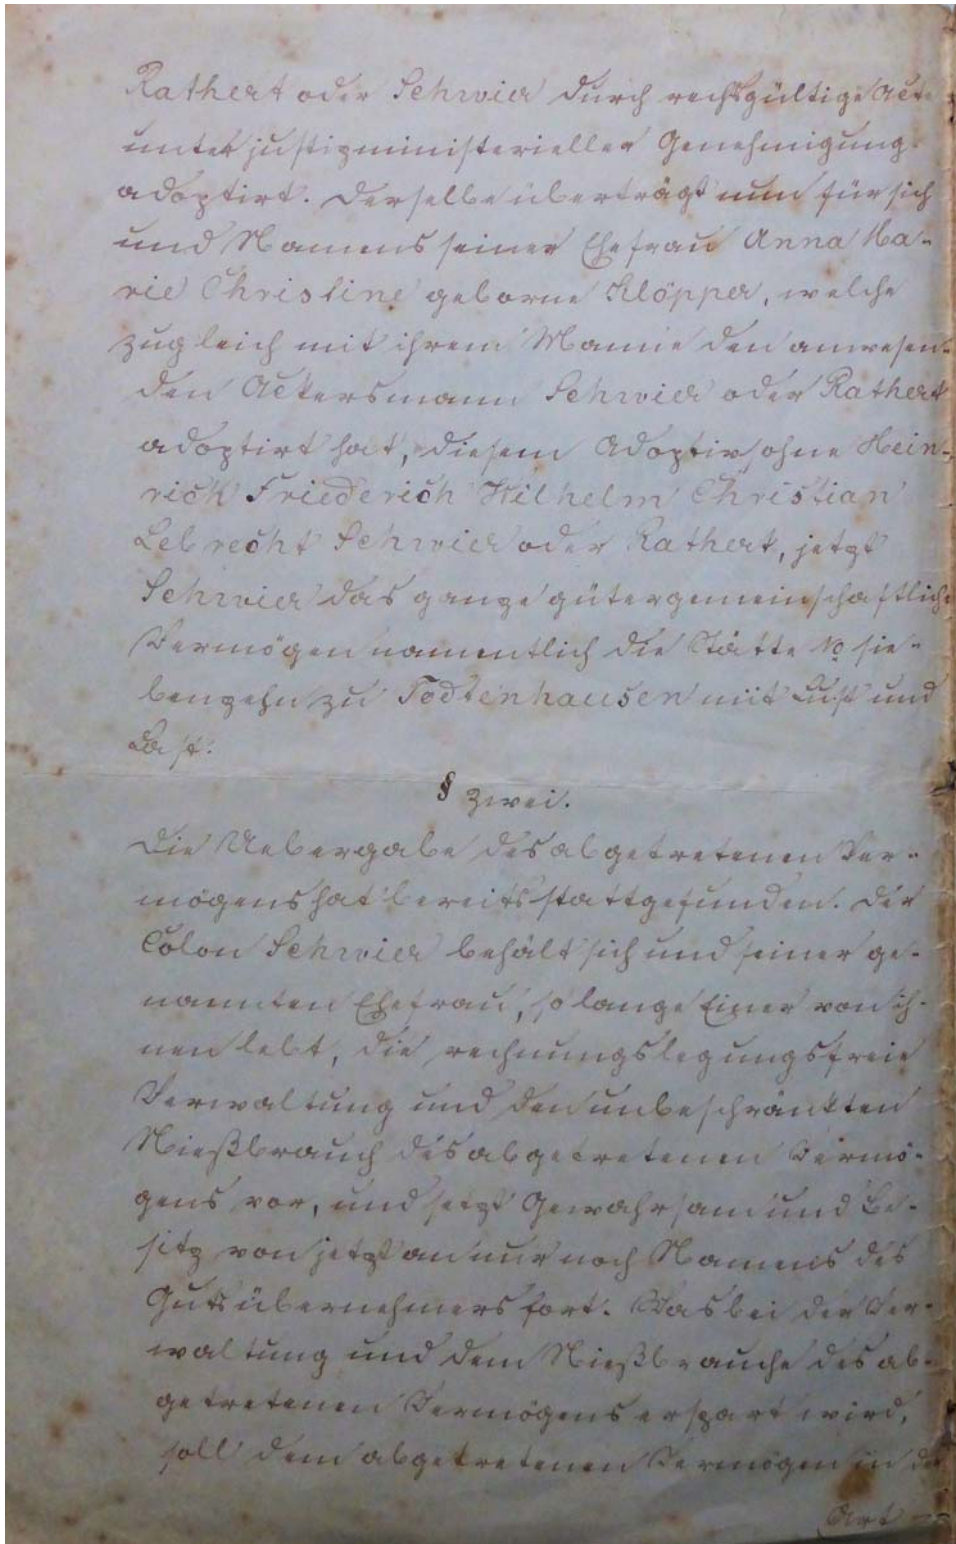 Rathert oder Schwier durch rechtsgültige Acte
unter justizministerieller Genehmigung
adoptirt. Derselbe überträgt nun für sich
und Namens seiner Ehefrau Anna Ma-
rie Christine geborne Klöpper, welche
zugleich mit ihrem Manne den anwesen-
den Ackersmann Schwier oder Rathert
adoptirt hat, diesem Adoptivsohne Hein-
rich Friederich Wilhelm Christian
Lebrecht Schwier oder Rathert, jetzt
Schwier das ganze gütergemeinschaftliche
Vermögen namentlich die Stätte No sie-
benzehn zu Todtenhausen mit Lust und
Last.
§ zwei.
Die Uebergabe des abgetretenen Ver-
mögens hat bereits stattgefunden. Der
Colon Schwier behält sich und seiner ge-
nannten Ehefrau, so lange Einer von ih-
nen lebt, die rechnungslegungsfreie
Verwaltung und den unbeschränkten
Nießbrauch des abgetretenen Vermö-
gens vor, und setzt Gewahrsam und Be-
sitz von jetzt an nur noch Namens des
Gutsübernehmers fort. Was bei der Ver-
waltung und dem Nießbrauche des ab-
getretenen Vermögens erspart wird,
soll dem abgetretenen Vermögen in der
Art